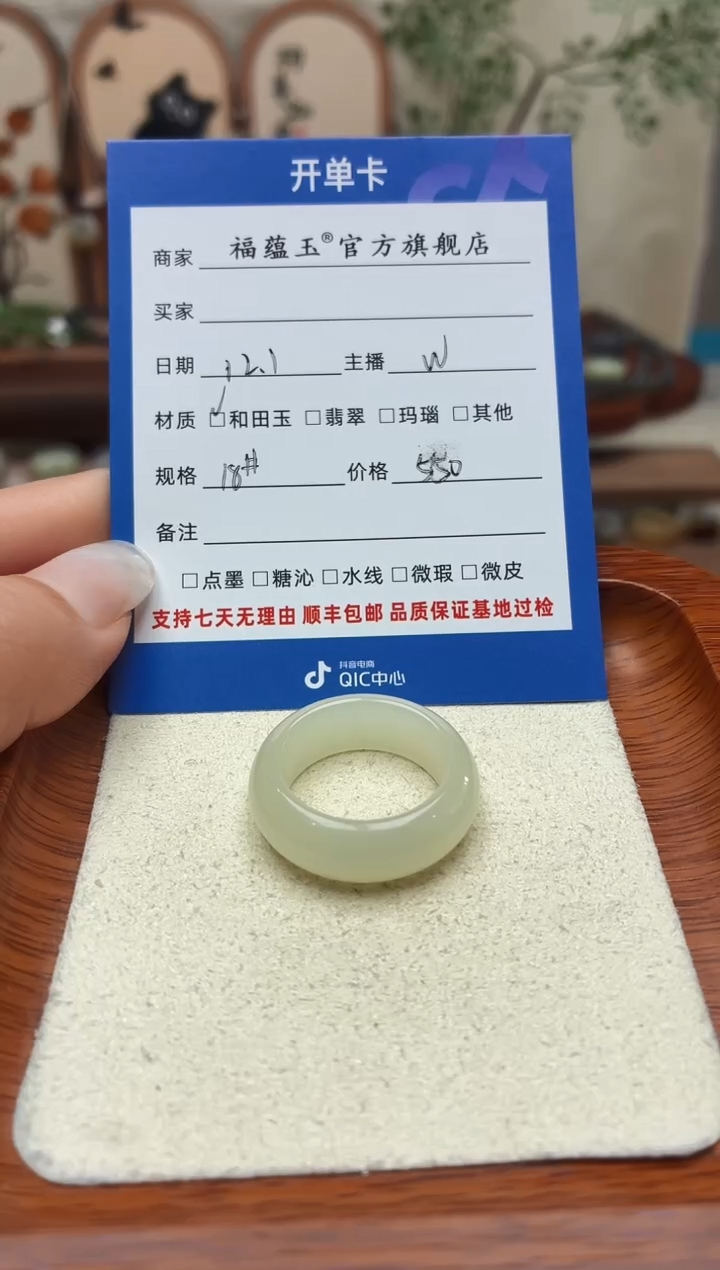 开单卡
商家 福蕴玉®官方旗舰店
买家
日期 12.1 主播 W
材质 ☑和田玉 □翡翠 □玛瑙 □其他
规格 18# 价格 550
备注
□点墨 □糖沁 □水线 □微瑕 □微皮
支持七天无理由 顺丰包邮 品质保证基地过检
抖音电商
QIC中心